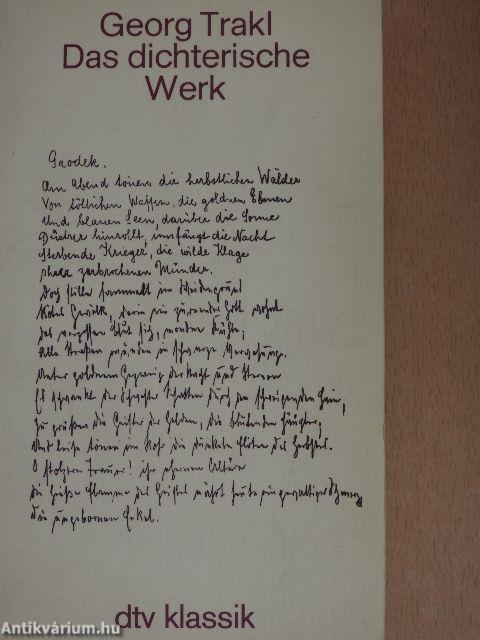 Georg Trakl
Das dichterische
Werk
Grodek.
Am Abend tönen die herbstlichen Wälder
Von tötlichen Waffen, die goldnen Ebenen
Und blauen Seen, darüber die Sonne
Düstrer hinrollt; umfängt die Nacht
Sterbende Krieger, die wilde Klage
Ihrer zerbrochenen Münder.
Doch stille sammelt im Weidengrund
Rotes Gewölk, darin ein zürnender Gott wohnt
Das vergossne Blut sich, mondne Kühle;
Alle Straßen münden in schwarze Verwesung.
Unter goldnem Gezweig der Nacht und Sternen
Es schwankt der Schwester Schatten durch den schweigenden Hain,
Zu grüßen die Geister der Helden, die blutenden Häupter;
Und leise tönen im Rohr die dunkeln Flöten des Herbstes.
O stolzere Trauer! ihr ehernen Altäre
Die heiße Flamme des Geistes nährt heute ein gewaltiger Schmerz,
Die ungebornen Enkel.
dtv klassik
Antikvárium.hu